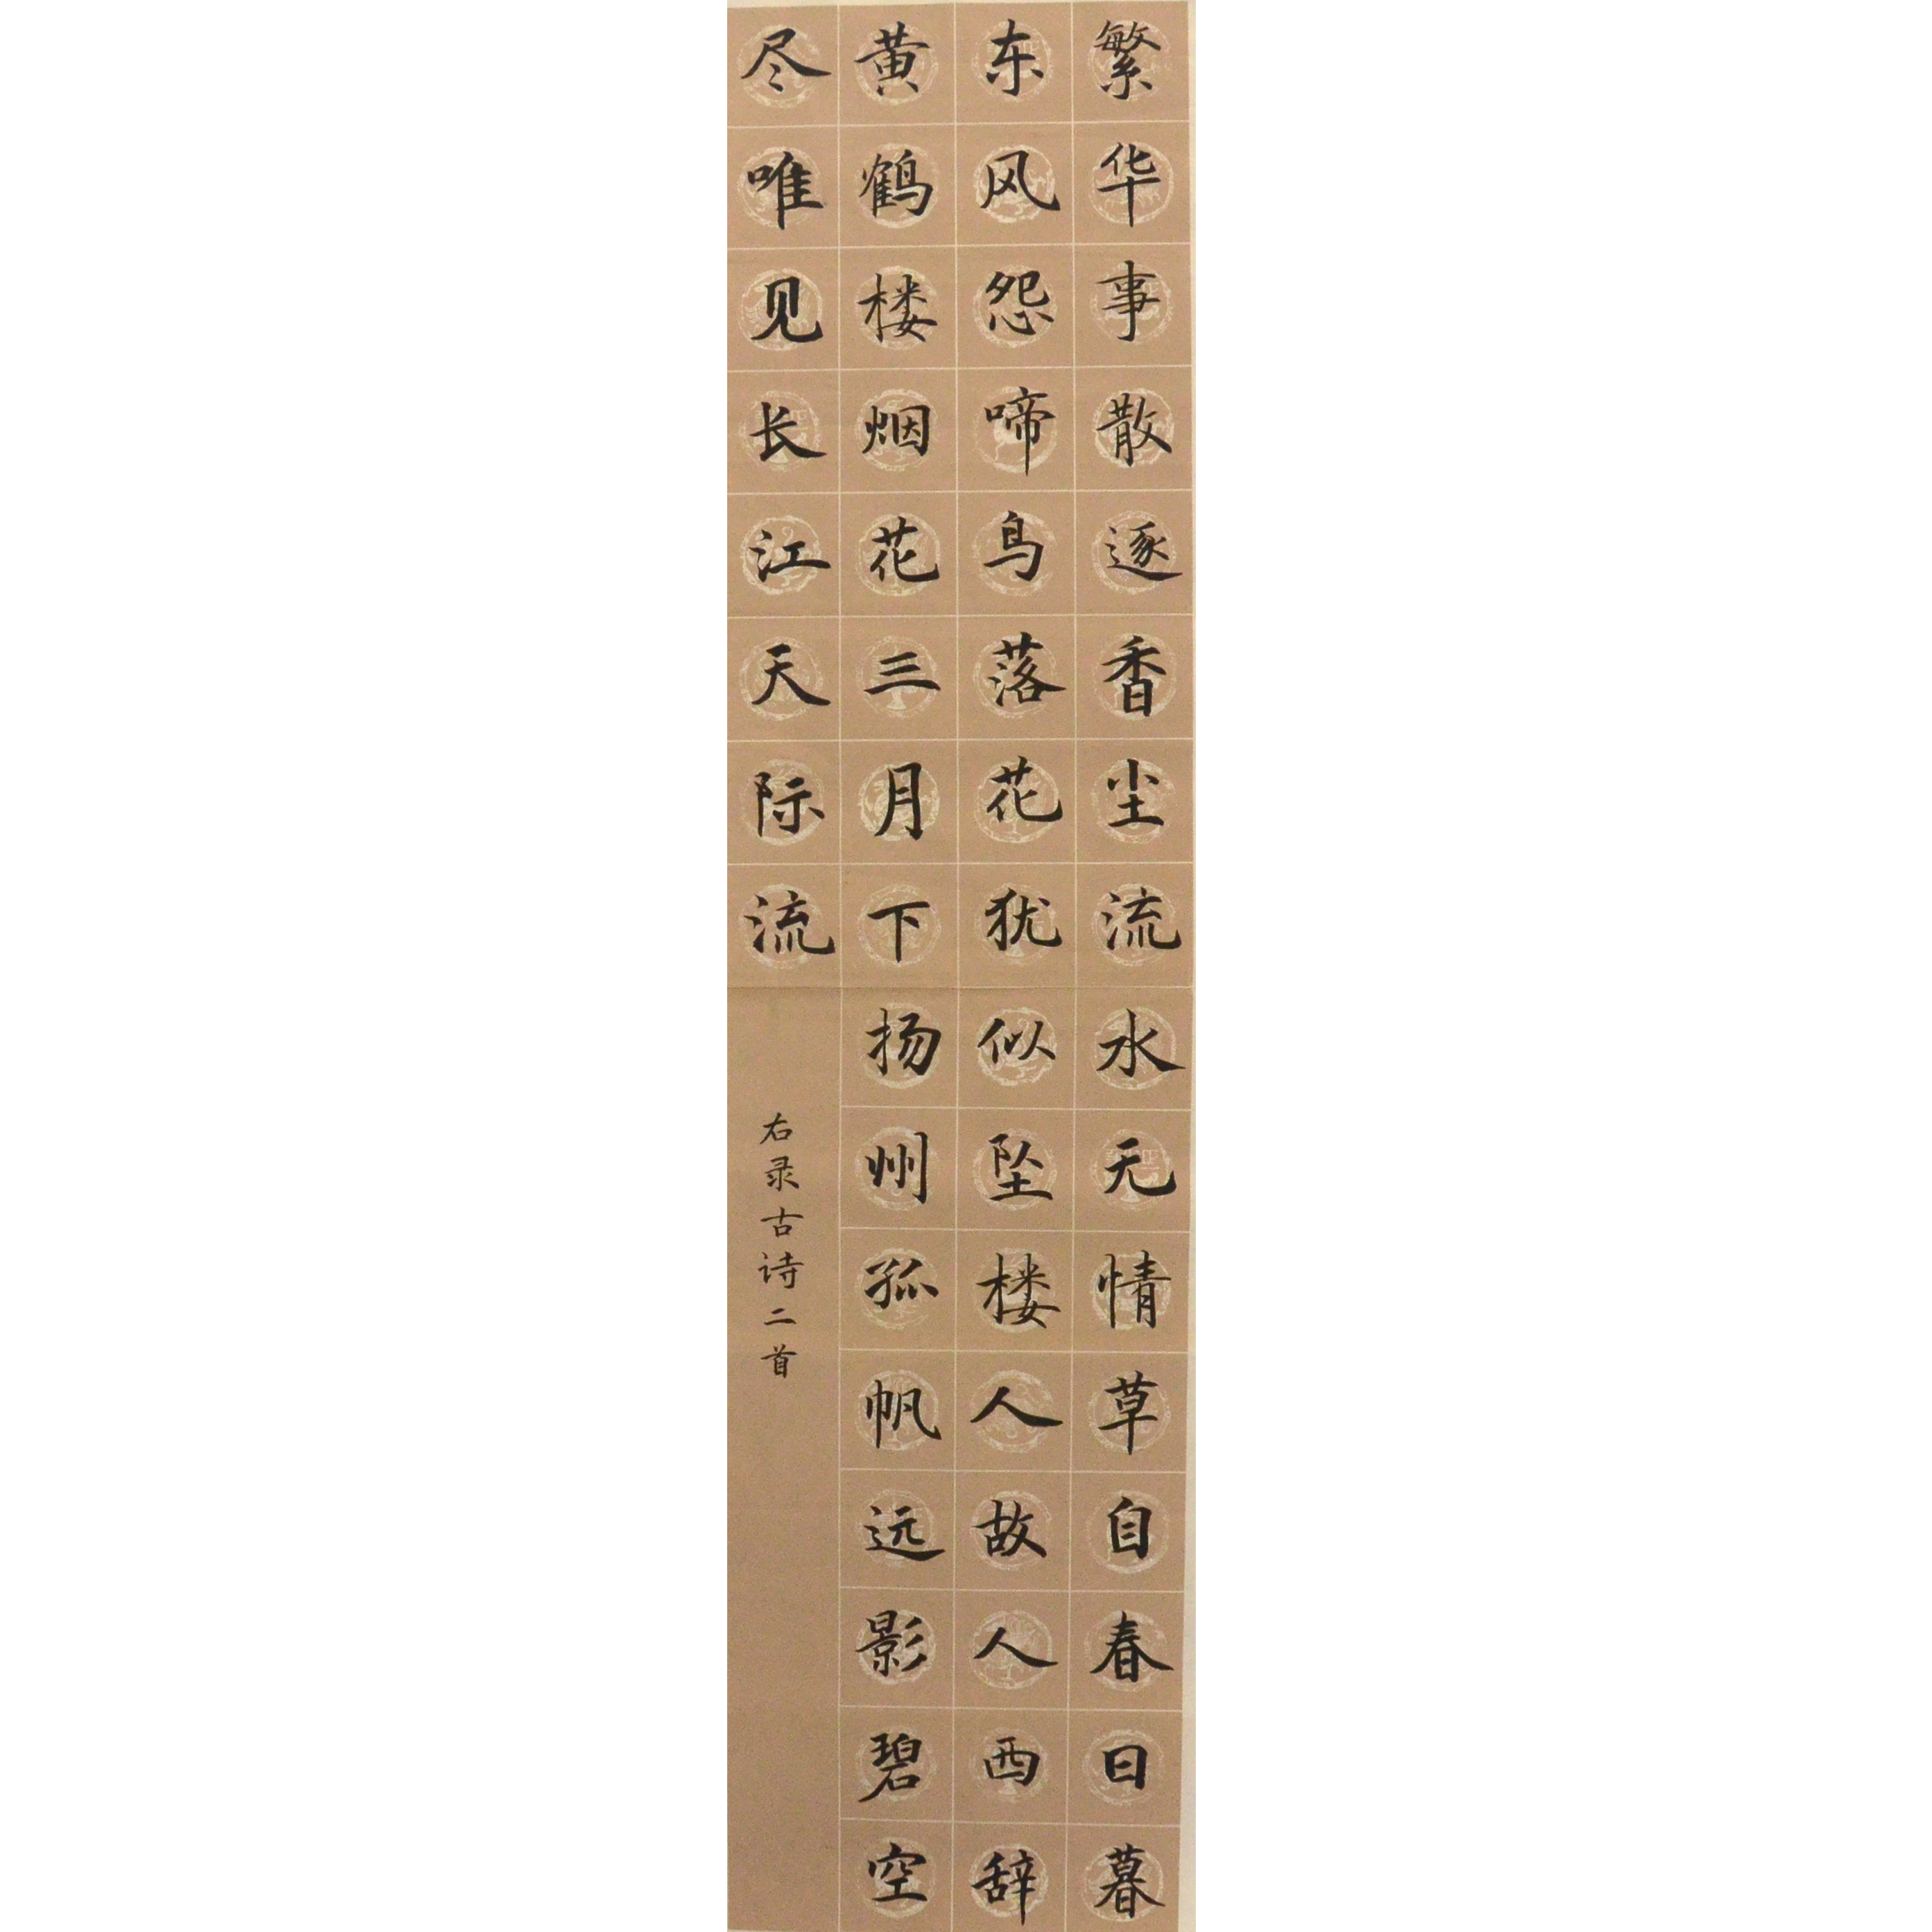 繁华事散逐香尘流水无情草自春日暮
东风怨啼鸟落花犹似坠楼人故人西辞
黄鹤楼烟花三月下扬州孤帆远影碧空
尽唯见长江天际流
右录古诗二首